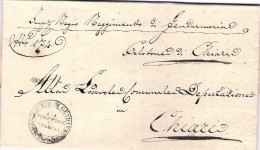 Imp. Regio Reggimento di Gendarmeria
Nro 1746
Pelotone di Chiari
Alla Lodevole Comunale Deputazione
in
Chiari